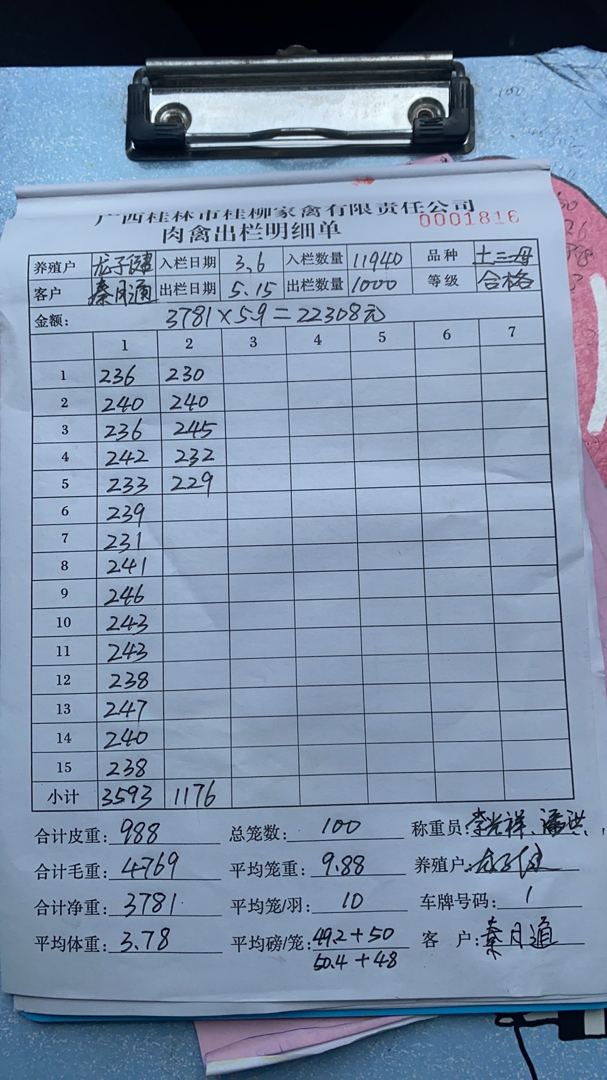 广西桂林市桂柳家禽有限责任公司
肉禽出栏明细单 0001816
养殖户 龙子健 入栏日期 3.6 入栏数量 11940 品种 土三母
客户 秦月通 出栏日期 5.15 出栏数量 1000 等级 合格
金额: 3781×5.9=22308元
1 2 3 4 5 6 7
1 236 230
2 240 240
3 236 245
4 242 232
5 233 229
6 239
7 231
8 241
9 246
10 243
11 243
12 238
13 247
14 240
15 238
小计 3593 1176
合计皮重: 988 总笼数: 100 称重员: 李光祥、潘洪
合计毛重: 4769 平均笼重: 9.88 养殖户: 龙子健
合计净重: 3781 平均笼/羽: 10 车牌号码: 1
平均体重: 3.78 平均磅/笼: 49.2+50 客户: 秦月通
50.4+48